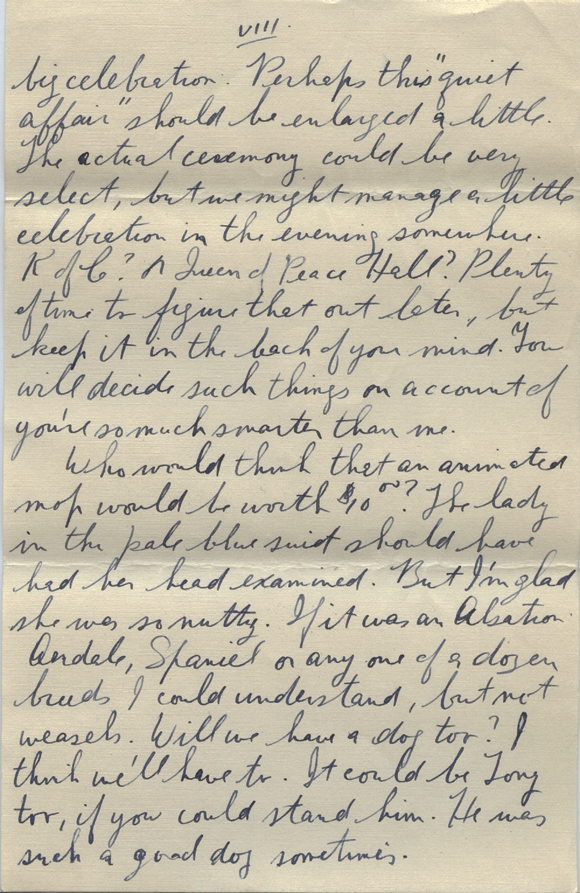 VIII.
big celebration. Perhaps this "quiet
affair" should be enlarged a little.
The actual ceremony could be very
select, but we might manage a little
celebration in the evening somewhere.
K of C? Or Queen of Peace Hall? Plenty
of time to figure that out later, but
keep it in the back of your mind. You
will decide such things on account of
you're so much smarter than me.
Who would think that an animated
mop would be worth $10.00? The lady
in the pale blue suit should have
had her head examined. But I'm glad
she was so nutty. If it was an Alsation
Airdale, Spaniel or any one of a dozen
breeds I could understand, but not
weasels. Will we have a dog too? I
think we'll have to. It could be Tony
too, if you could stand him. He was
such a good dog sometimes.